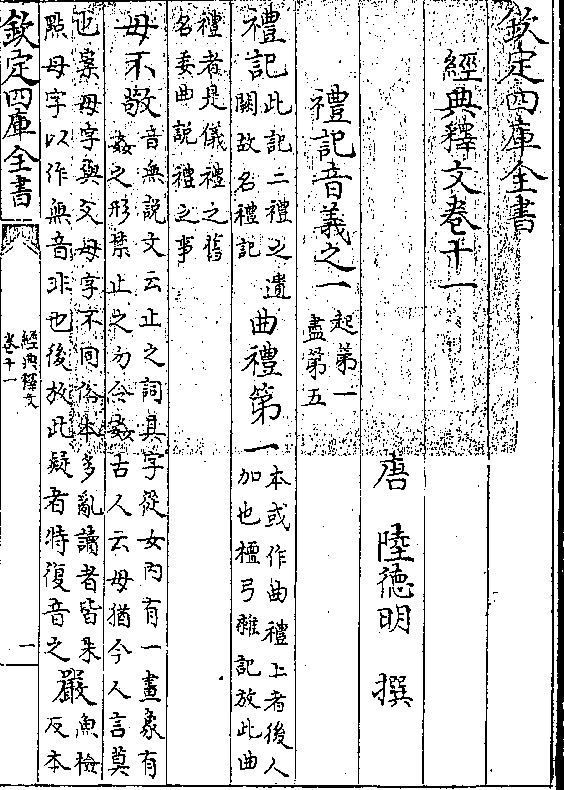 欽定四庫全書
經典釋文卷十一
唐 陸德明 撰
禮記音義之一 起第一
盡第五
禮記 此記二禮之遺
闕故名禮記
曲禮第一 本或作曲禮上者後人
加也檀弓雜記放此曲
禮者是儀禮之舊
名委曲說禮之事
毋不敬 音無說文云止之詞其字從女內有一畫象有
姦之形禁止之勿令姦古人云毋猶今人言莫
也案毋字與父母字不同俗本多亂讀者皆朱
點母字以作無音非也後放此疑者特復音之
嚴 魚檢
反本
欽定四庫全書
經典釋文
卷十一
一